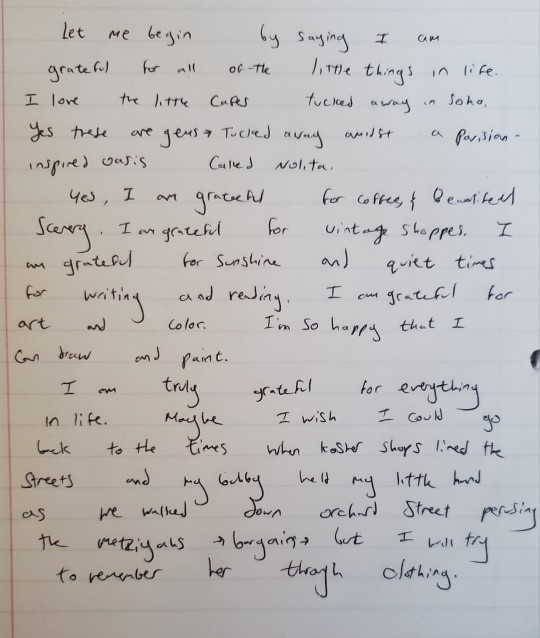 Let me begin by saying I am
grateful for all of the little things in life.
I love the little cafes tucked away in Soho.
Yes these are gems → Tucked away amidst a parisian-
inspired oasis called Nolita.
Yes, I am grateful for coffee, & Beautiful
Scenery. I am grateful for vintage shoppes. I
am grateful for sunshine and quiet times
for writing and reading. I am grateful for
art and color. I'm so happy that I
can draw and paint.
I am truly grateful for everything
in life. Maybe I wish I could go
back to the times when kosher shops lined the
streets and my bubby held my little hand
as we walked down orchard Street perusing
the metziyahs → bargains → but I will try
to remember her through clothing.